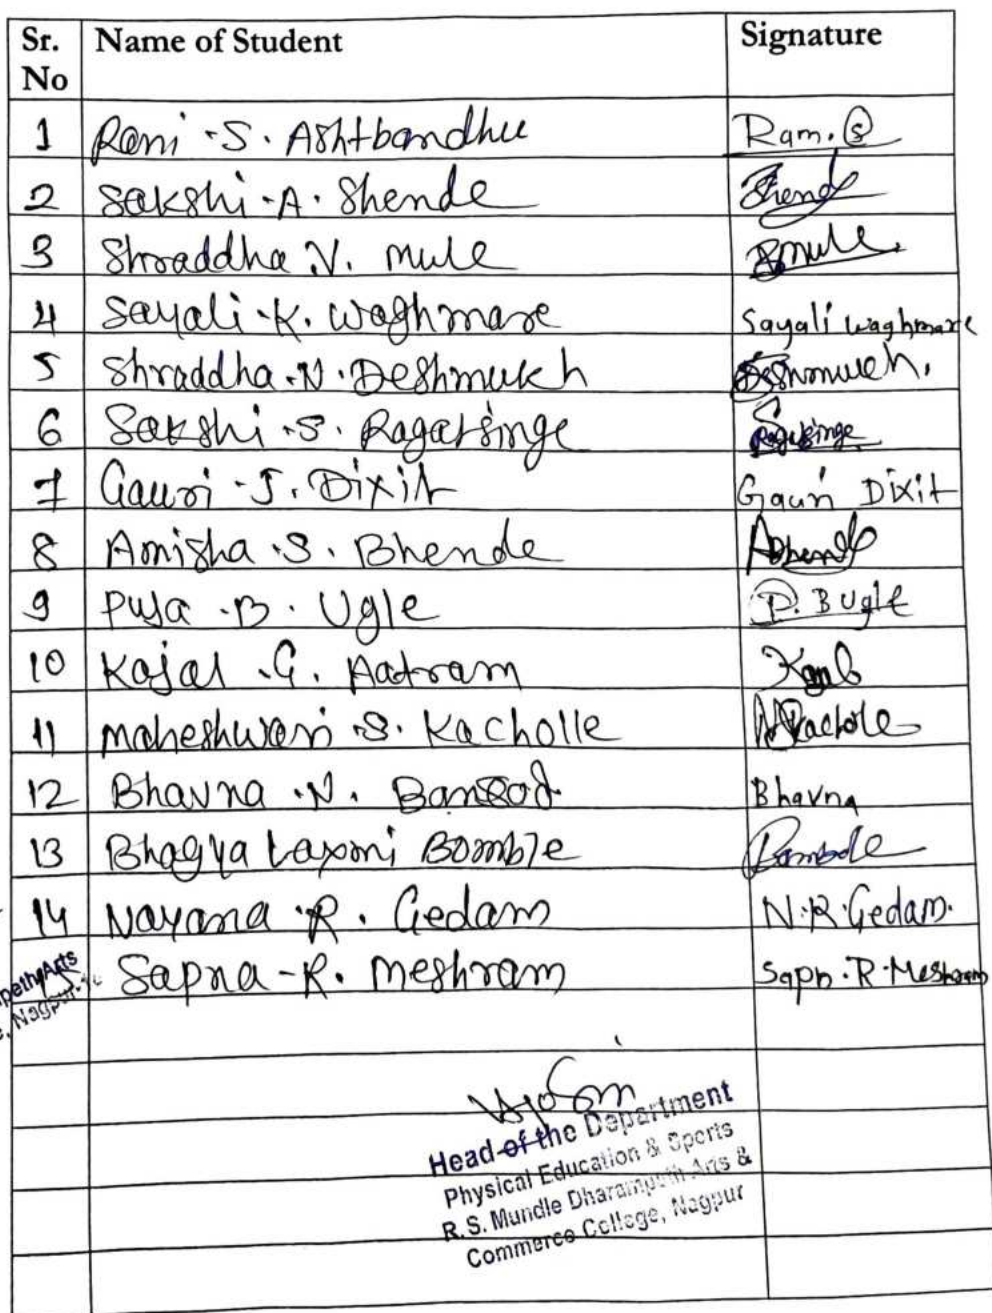 Sr. No Name of Student Signature
1 Rani .S. Ashtbandhu Ram. S
2 Sakshi .A. Shende Shende
3 Shraddha N. Mule Smule
4 Sayali .K. Waghmare Sayali Waghmare
5 Shraddha .N. Deshmukh Deshmukh.
6 Sakshi .S. Ragatsinge Ragatsinge
7 Gauri .J. Dixit Gauri Dixit
8 Amisha .S. Bhende ABhende
9 Puja .B. Ugle P. B Ugle
10 Kajal .G. Aatram
11 Maheshwari .S. Kacholle MKachole
12 Bhavna .N. Bansod. Bhavna
13 Bhagya Laxmi Bomble Bombale
14 Nayana .R. Gedam N.R. Gedam.
15 Sapna - R. Meshram Sapn. R. Meshram
Arts
Nagpur
Head of the Department
Physical Education & Sports
R. S. Mundle Dharampeth Arts &
Commerce College, Nagpur